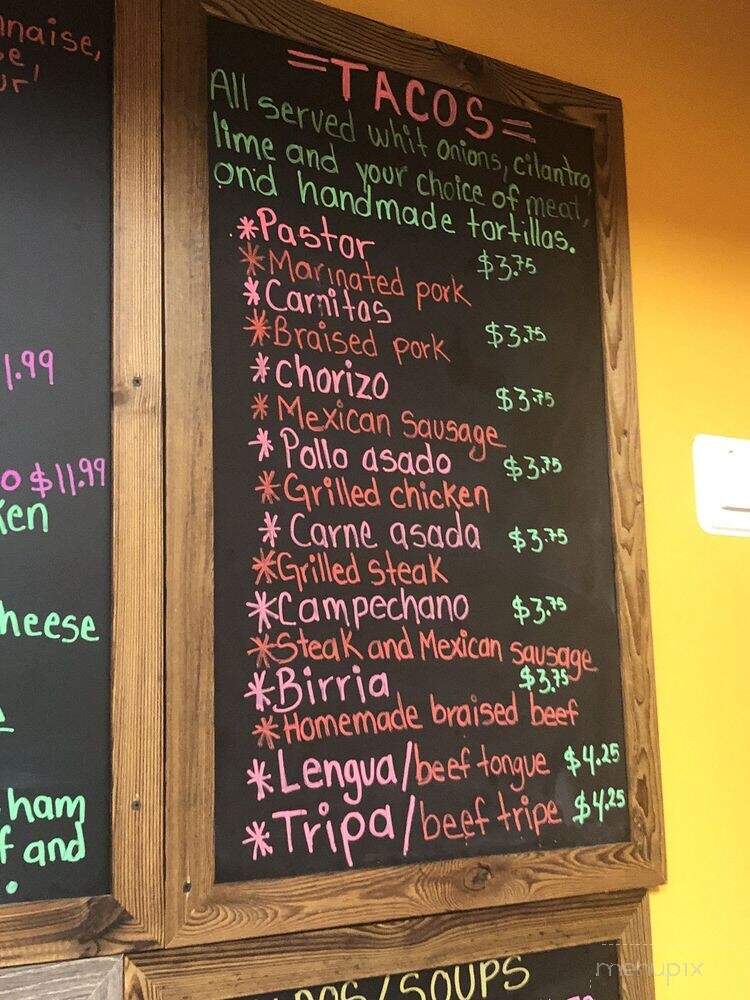 nnaise,
1.99
$11.99
heese
ham
and
=TACOS=
All served whit onions, cilantro,
lime and your choice of meat,
and handmade tortillas.
*Pastor $3.75
*Marinated pork
*Carnitas $3.75
*Braised pork
*chorizo $3.75
*Mexican sausage
*Pollo asado $3.75
*Grilled chicken
*Carne asada $3.75
*Grilled steak
*Campechano $3.75
*Steak and Mexican sausage
*Birria $3.75
*Homemade braised beef
*Lengua/beef tongue $4.25
*Tripa/beef tripe $4.25
/SOUPS
menupix